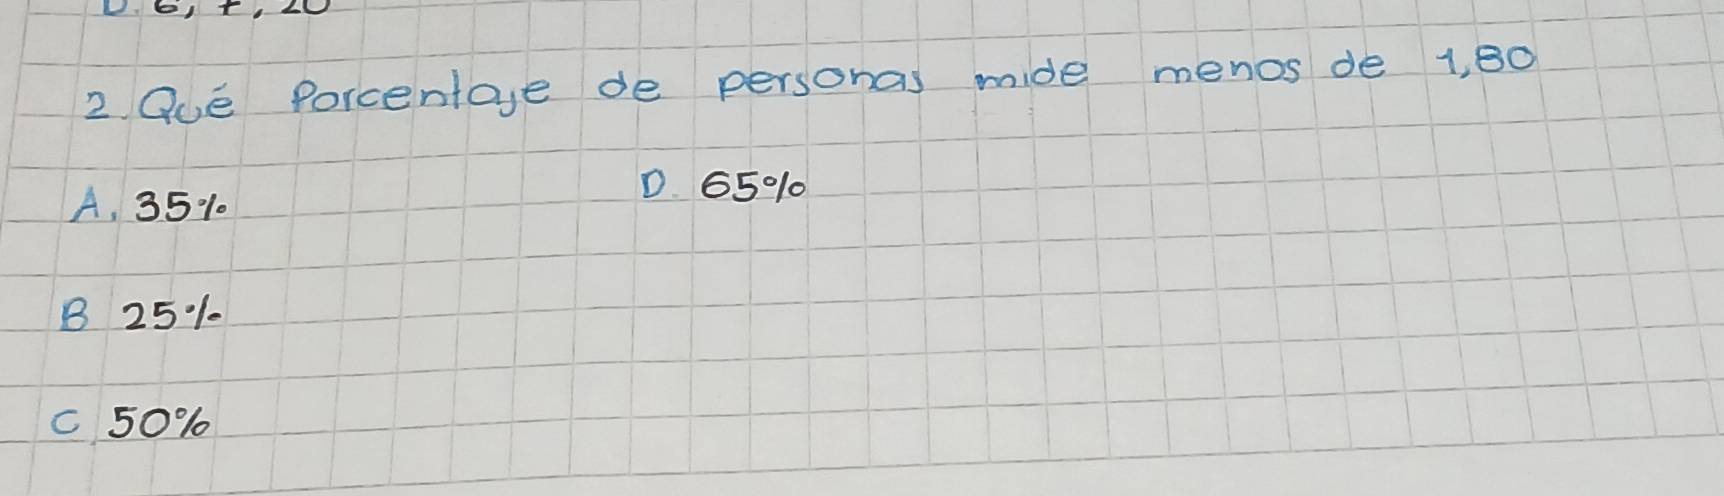 D. 6, 7, 20
2. Qué Porcentaje de personas mide menos de 1,80
A. 35%
D. 65%
B 25%
C. 50%